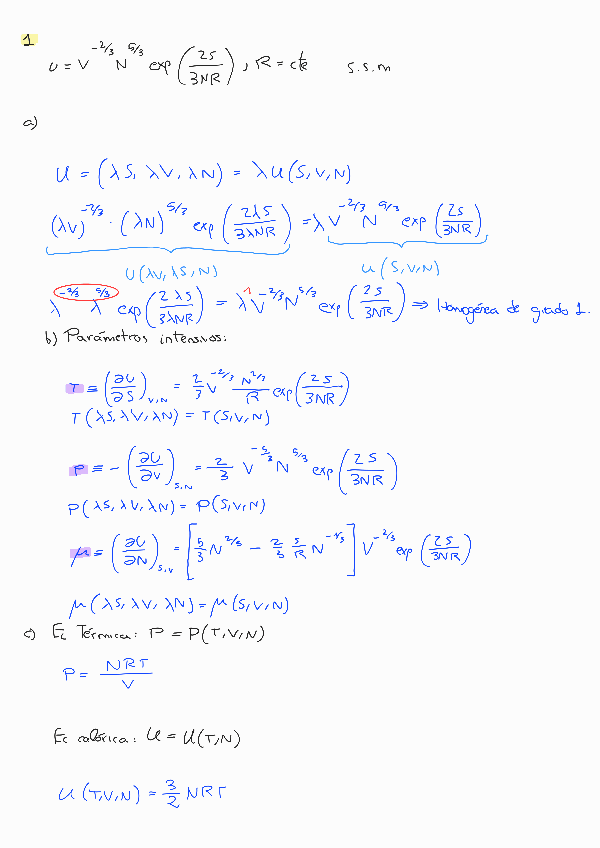 1
u = V^{-2/3} N^{5/3} exp(2S/3NR), R = cte S.S.M
a)
U = (λS, λV, λN) = λU(S,V,N)
(λV)^{-2/3} · (λN)^{5/3} exp(2λS/3λNR) = λ V^{-2/3} N^{5/3} exp(2S/3NR)
U(λV,λS,N) U(S,V,N)
λ^{-2/3} λ^{5/3} exp(2λS/3λNR) = λ^1 V^{-2/3} N^{5/3} exp(2S/3NR) ⇒ Homogénea de grado 1.
b) Parámetros intensivos:
T ≡ (∂U/∂S)_{V,N} = 2/3 V^{-2/3} N^{2/3}/R exp(2S/3NR)
T(λS,λV,λN) = T(S,V,N)
P ≡ -(∂U/∂V)_{S,N} = 2/3 V^{-5/3} N^{5/3} exp(2S/3NR)
P(λS,λV,λN) = P(S,V,N)
μ ≡ (∂U/∂N)_{S,V} = [5/3 N^{2/3} - 2/3 S/R N^{-1/3}] V^{-2/3} exp(2S/3NR)
μ(λS,λV,λN) = μ(S,V,N)
c) Ec Térmica: P = P(T,V,N)
P = NRT/V
Ec calórica: U = U(T,N)
U(T,V,N) = 3/2 NRT